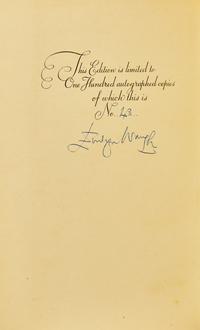 This Edition is limited to
One Hundred autographed copies
of which this is
No. 43.
Evelyn Waugh